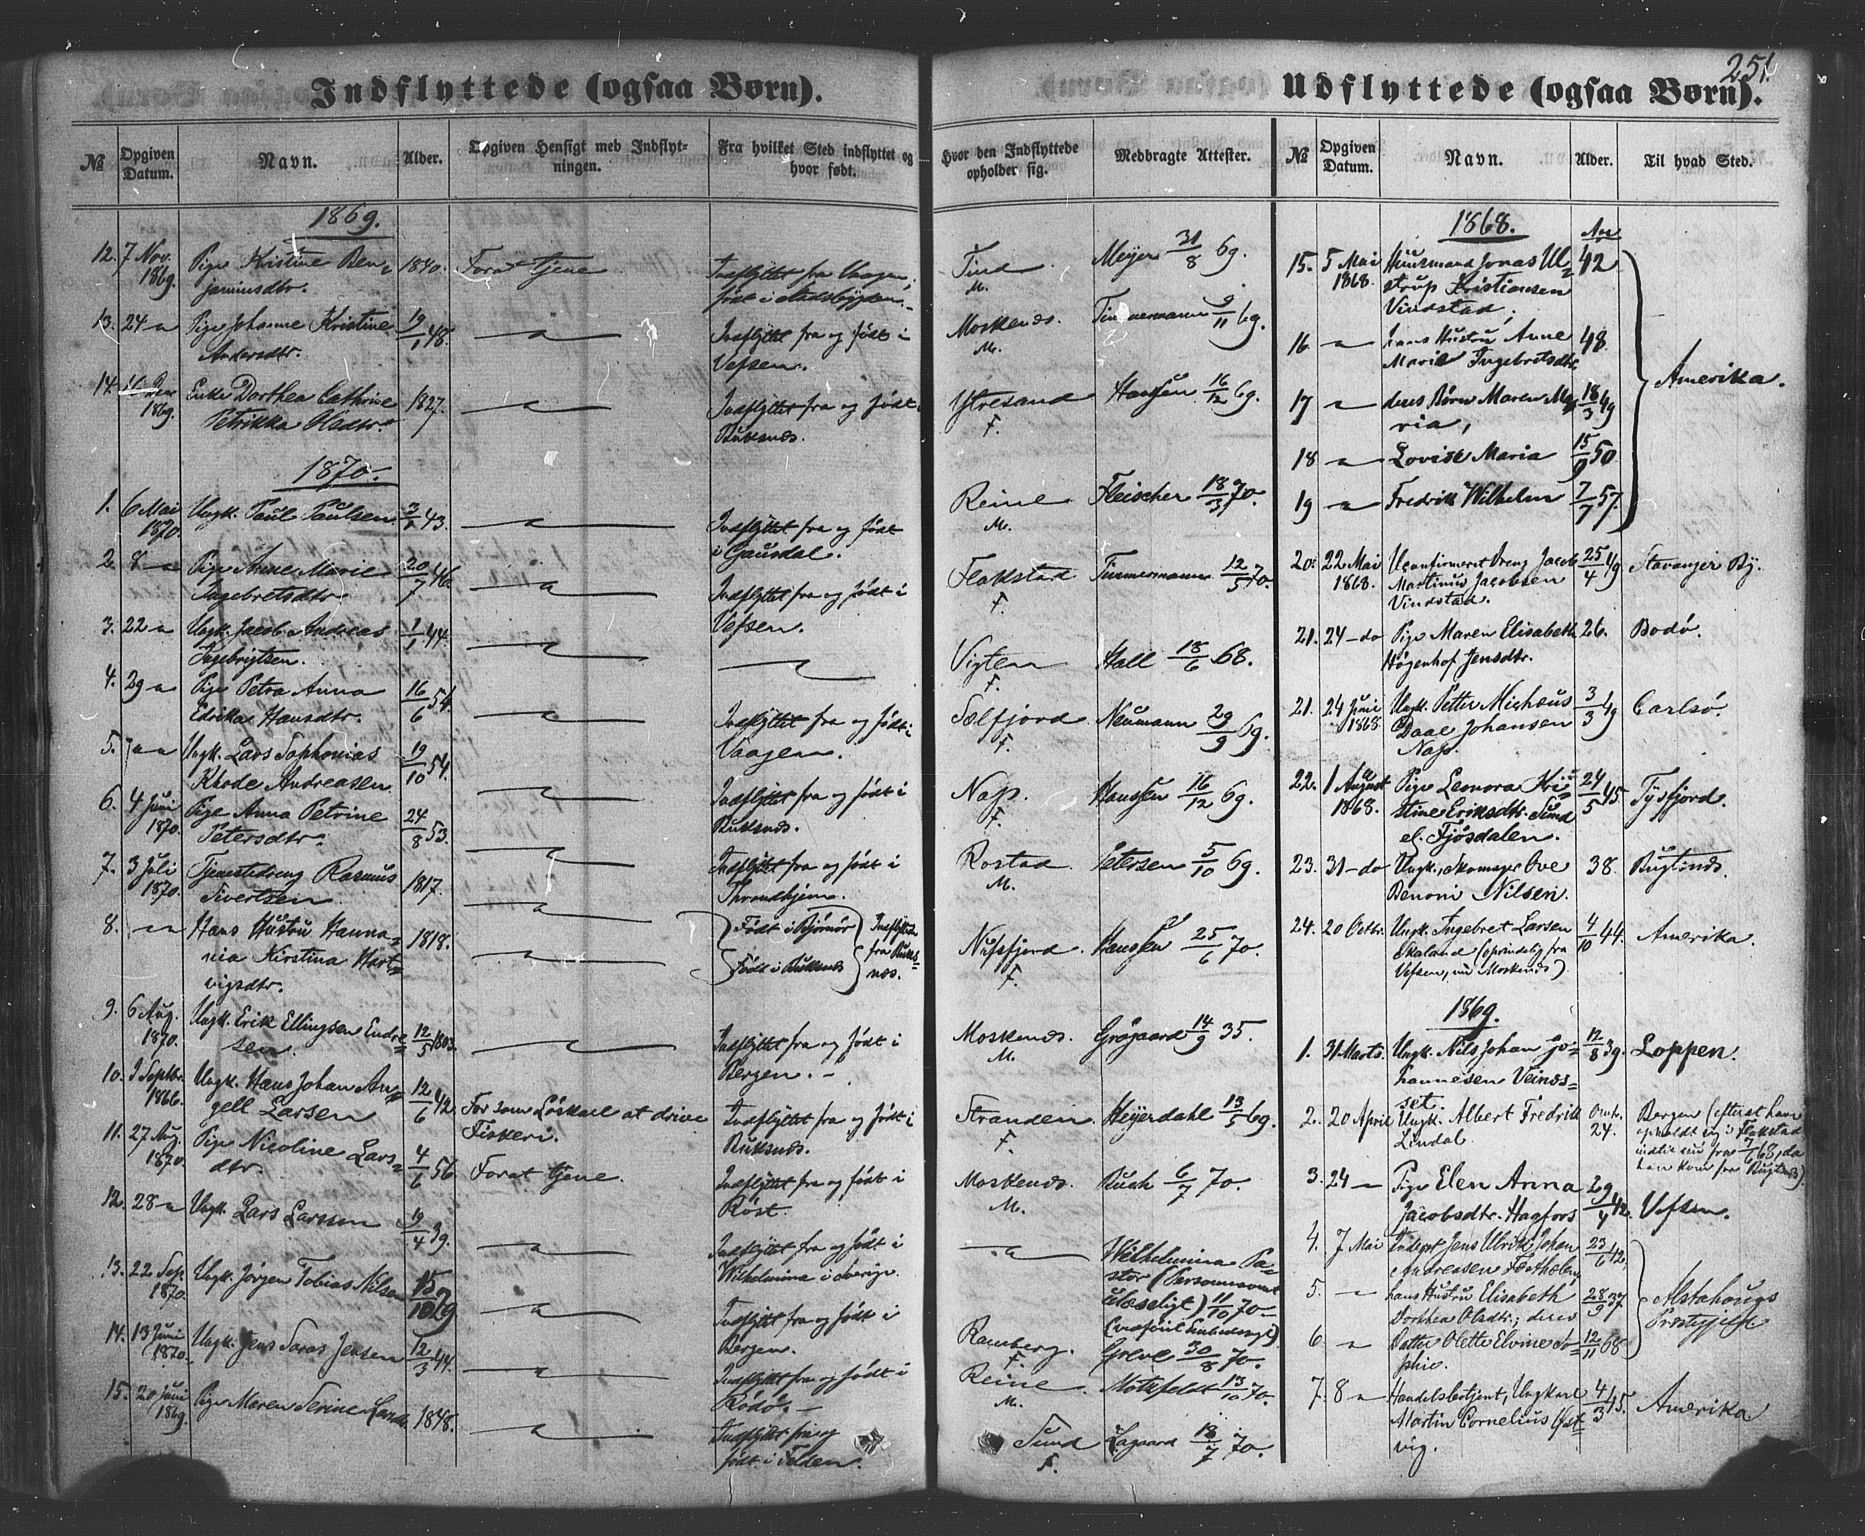 251.
Indflyttede (ogsaa Børn).
№ Opgiven Datum. Navn. Alder. Opgiven Hensigt med Indflytningen. Fra hvilket Sted indflyttet og hvor født. Hvor den Indflyttede opholder sig. Medbragte Attester.
1869.
12. 7 Nov. 1869. Pige Kristine Benjaminsdtr. 1840. For at tjene Indflyttet fra Vaagen, født i Stadsbygden. Tind M. Meyer 31/8 69.
13. 24 - Pige Johanne Kristine Andersdtr. 19/1 48. Indflyttet fra og født i Vefsen. Moskenæs. M. Timmermann 9/11 69.
14. Dec 1869. Enke Dorthea Cathrine Petrikka Olsdtr. 1827. Indflyttet fra og født i Buksnæs. Ytresand F. Hanssen 16/12 69.
1870.
1. 6 Mai 1870. Ungk. Paul Paulsen 43. Indflyttet fra og født i Gausdal. Reine M. Fleischer 18/3 70.
2. 8 - Pige Anne Marie Ingebretsdtr. 20/7 46. Indflyttet fra og født i Vefsen. Flakstad F. Timmermann 12/5 70.
3. 22 - Ungk. Jacob Andreas Ingebrigtsen. 1/1 44. Vigten F. Hall 18/6 68.
4. 29 - Pige Petra Anna Edrikae Hansdtr. 16/6 54. Indflyttet fra og født i Vaagen. Sælfjord F. Neumann 29/9 69.
5. Ungk. Lars Sophonias Rhode Andreassen 19/10 54. Indflyttet fra og født i Buksnæs. Nap. F. Hanssen 16/12 69.
6. 4 Juni 1870. Pige Anna Petrine Petersdtr. 24/8 53. Indflyttet fra og født i Throndhjem. Rostad M. Petersen 5/10 69.
7. 3 Juli 1870. Tjenestedreng Rasmus Sivertsen 1817. Født i Bjørnør Indflyttede fra Buksnæs. Nufsfjord F. Hanssen 25/6 70.
8. Hans Hustru Hannania Kirstina Hartvigsdtr. 1818. Født i Buksnæs
9. 6 Aug. 1870. Ungk. Erik Ellingsen Endresen. 12/5 1803. Indflyttet fra og født i Bergen. Moskenæs. M. Grøgaard 14/9 35.
10. Septbr. 1866. Ungk. Hans Johan Angell Larsen 12/6 42. For som Løskarl at drive Fiskeri. Indflyttet fra og født i Buksnæs. Stranden F. Heyerdahl 13/5 69.
11. 27 Aug. 1870. Pige Nicoline Larsdtr. 4/6 56. For at tjene. Indflyttet fra og født i Røst. Moskenæs. M. Buch 6/7 70.
12. 28 - Ungk. Lars Larssen 19/4 39. Indflyttet fra og født i Wilhelmina i Sverige. Wilhelmina Pastor (Personnavnet ulæseligt) 11/10 70
13. 22 Sep 1870. Ungk. Jørgen Tobias Nilsen Indflyttet fra og født i Bergen. Ramberg. F. Greve 30/8 70.
14. 13 Juni 1870. Ungk. Jens Saras Jensen 12/3 44. Indflyttet fra og født i Rødø. Reine M. Motzfeldt 13/10 70.
15. 20 Juni 1869. Pige Maren Serine 1848. Indflyttet fra og født i Folden. Sund F. Lagaard 18/7 70.
Udflyttede (ogsaa Børn).
№ Opgiven Datum. Navn. Alder. Til hvad Sted.
1868.
15. 5 Mai 1868. Huusmand Jonas Ulstrup Kristiansen Vindstad; 42 Amerika.
16. hans Hustru Anne Marie Ingebretsdtr. 48.
17 deres Børn Maren Maria, 18/3 49
18 Lovise Maria 15/9 50
19 Fredrik Wilhelm 7/7 57.
20. 22 Mai 1868. Uconfirmeret Dreng Jacob Martinus Jacobsen Vindstad. 25/4 49 Stavanger By.
21. 24 - do Pige Maren Elisabeth Høgenhof Jensdtr. 26. Bodø.
21. 24 Juni 1868 Ungk. Petter Michæus Daae Johansen Nap. 3/3 49 Carlsø.
22. 1 August 1868. Pige Leonora Kristine Eriksdtr. Sund el. Fjøsdalen. 24/5 45 Tysfjord.
23. 31 - do Ungk., Skomager Ove Benoni Nilsen. 38. Bugtnæs.
24. 20 Octbr. Ungk. Ingebret Larsen Skaland (oprindelig fra Vefsen, nu Moskenæs). 4/10 44. Amerika.
1869.
1. 31 Marts. Ungk. Nils Johan Johannesen Veinæsset. 12/8 39. Loppen.
2. 20 April Ungk. Albert Fredrik Lindal. Omtr. 24. Bergen (efter at have opholdt sig i Flakstad indtil nu fra 7/6 68, da han kom fra Bugtnæs).
3. 24 - Pige Elen Anna Jacobsdtr. Hagfors 29/4 42. Vefsen.
4. 7 Mai Inderst Jens Ulrik Johan Andreassen 23/6 42, Alstahougs Præstegjeld
5. hans Hustru Elisabeth Dorthea Olsdtr.; deres 28/9 37
6 Datter Olette Elvine Sophie. 12/11 68
7. 8 - Handelsbetjent, Ungkarl Martin Cornelius Østvig. 4/3 45. Amerika